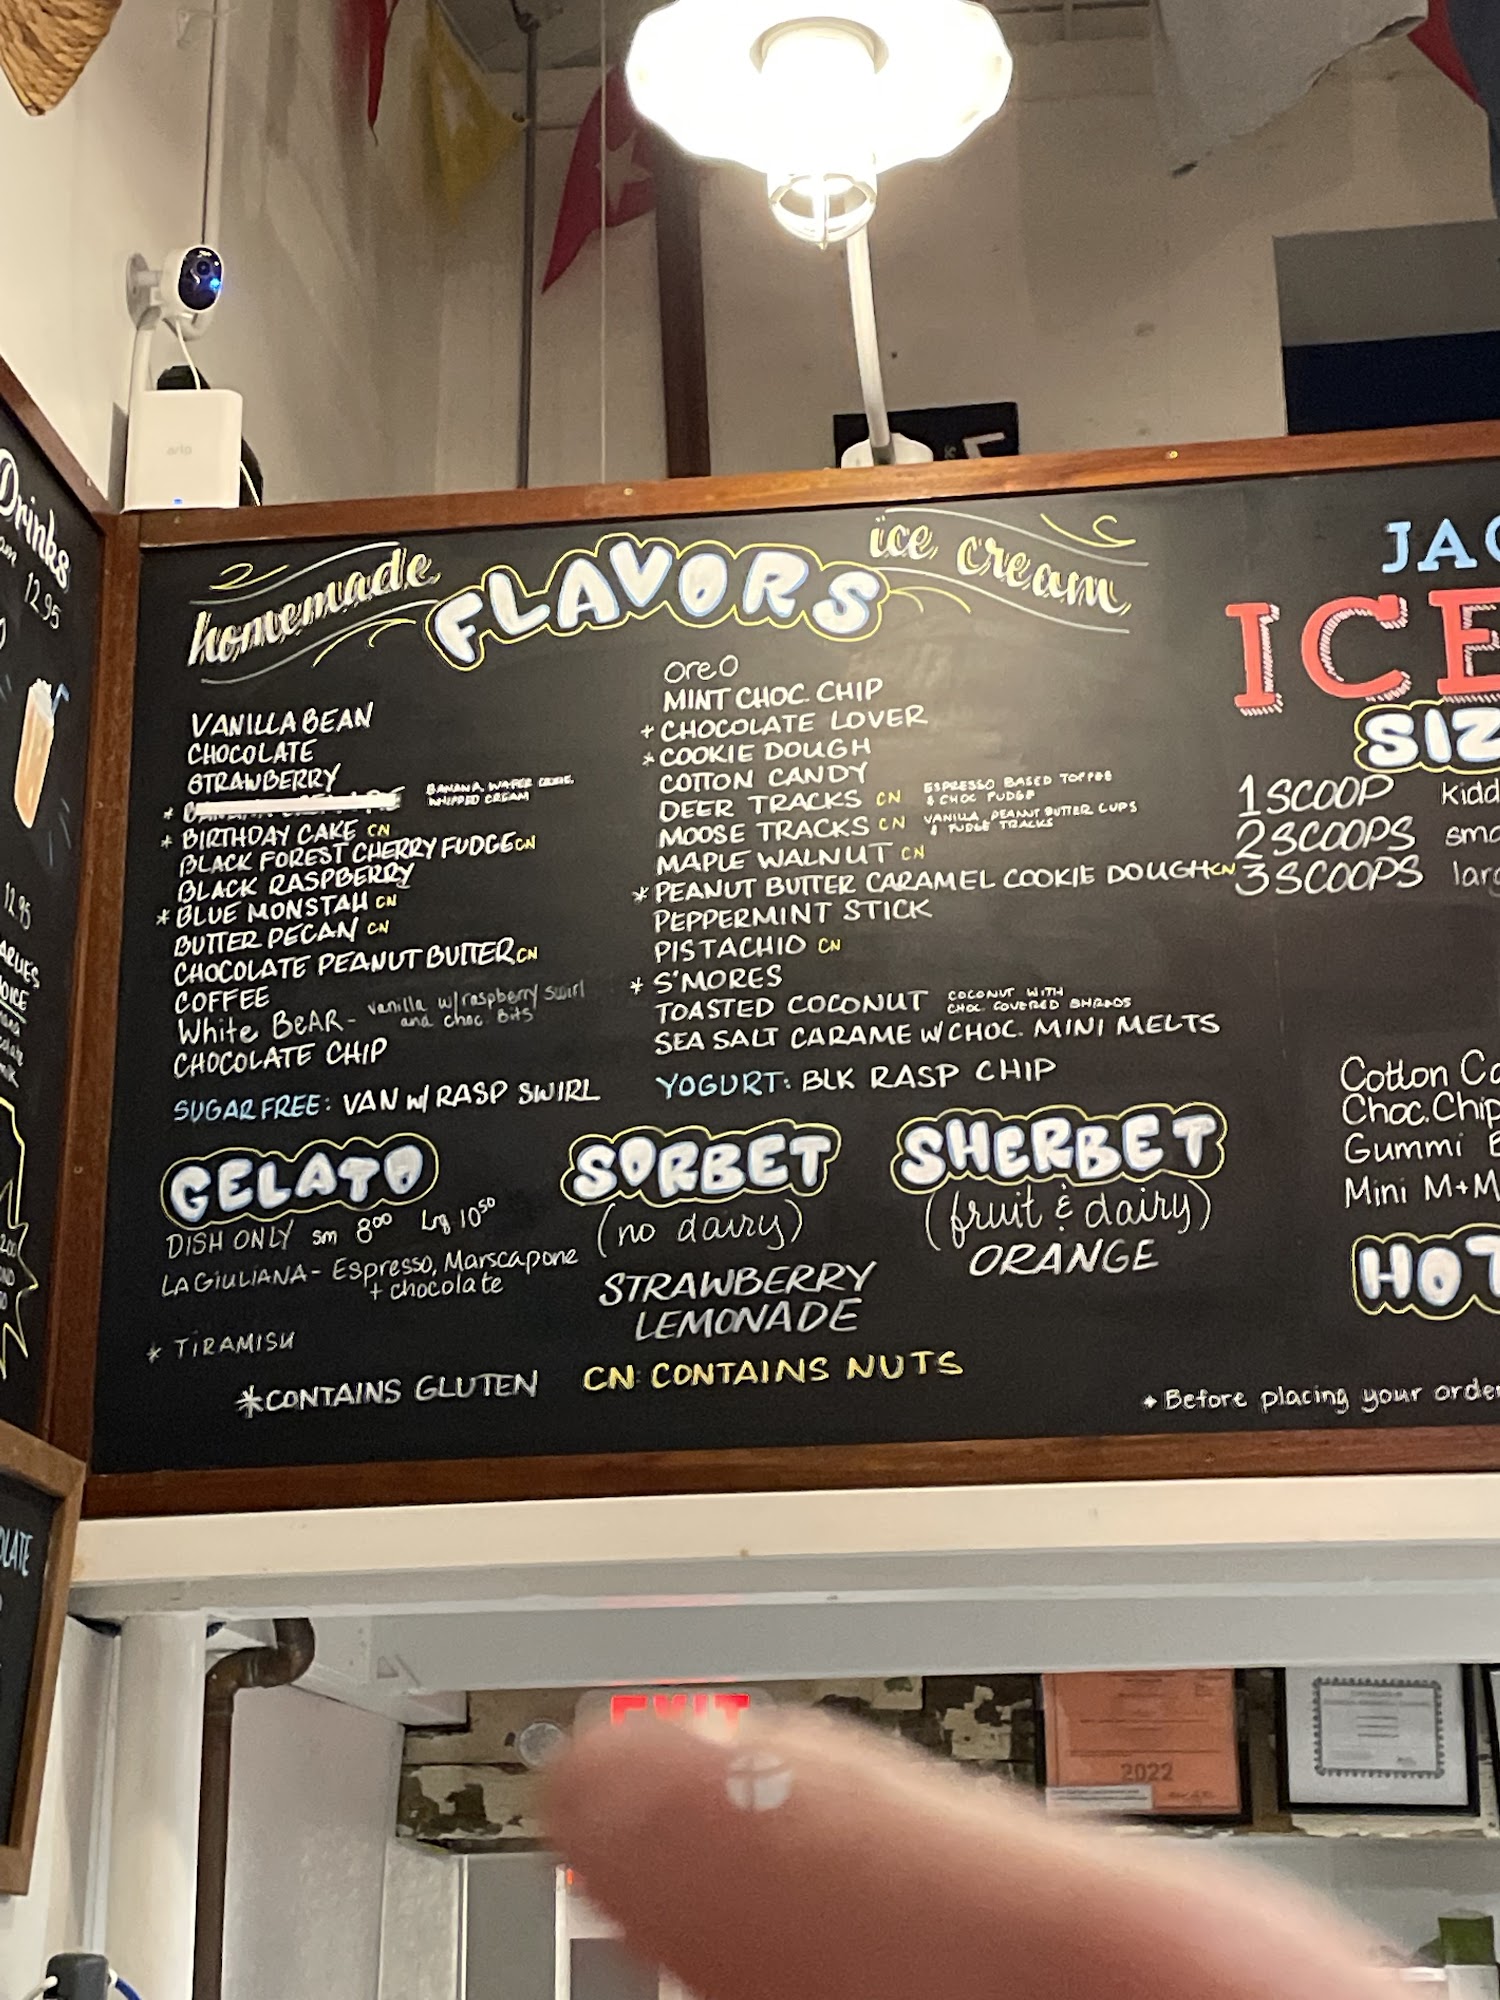 Drinks
12.95
12.95
arlo
homemade
FLAVORS
ice cream
VANILLA BEAN
CHOCOLATE
STRAWBERRY
* BANANA, WAFER COOKIE,
WHIPPED CREAM
* BIRTHDAY CAKE CN
BLACK FOREST CHERRY FUDGE CN
BLACK RASPBERRY
* BLUE MONSTAH CN
BUTTER PECAN CN
CHOCOLATE PEANUT BUTTER CN
COFFEE
White BeAR - vanilla w/ raspberry swirl
and choc. Bits
CHOCOLATE CHIP
SUGAR FREE: VAN w/ RASP SWIRL
oreO
MINT CHOC. CHIP
+ CHOCOLATE LOVER
* COOKIE DOUGH
COTTON CANDY
DEER TRACKS CN ESPRESSO BASED TOFFEE
& CHOC FUDGE
MOOSE TRACKS CN VANILLA, PEANUT BUTTER CUPS
& FUDGE TRACKS
MAPLE WALNUT CN
* PEANUT BUTTER CARAMEL COOKIE DOUGH CN
PEPPERMINT STICK
PISTACHIO CN
* S'MORES
TOASTED COCONUT COCONUT WITH
CHOC. COVERED SHREDS
SEA SALT CARAME W/ CHOC. MINI MELTS
YOGURT: BLK RASP CHIP
GELATO
DISH ONLY sm 8.00 Lrg 10.50
LA GIULIANA - Espresso, Marscapone
+ chocolate
* TIRAMISU
SORBET
(no dairy)
STRAWBERRY
LEMONADE
SHERBET
(fruit & dairy)
ORANGE
*CONTAINS GLUTEN CN: CONTAINS NUTS
JAC
ICE
SIZ
1 SCOOP kidd
2 SCOOPS sma
3 SCOOPS larg
Cotton Ca
Choc. Chip
Gummi B
Mini M+M
HOT
* Before placing your order
EXIT
2022